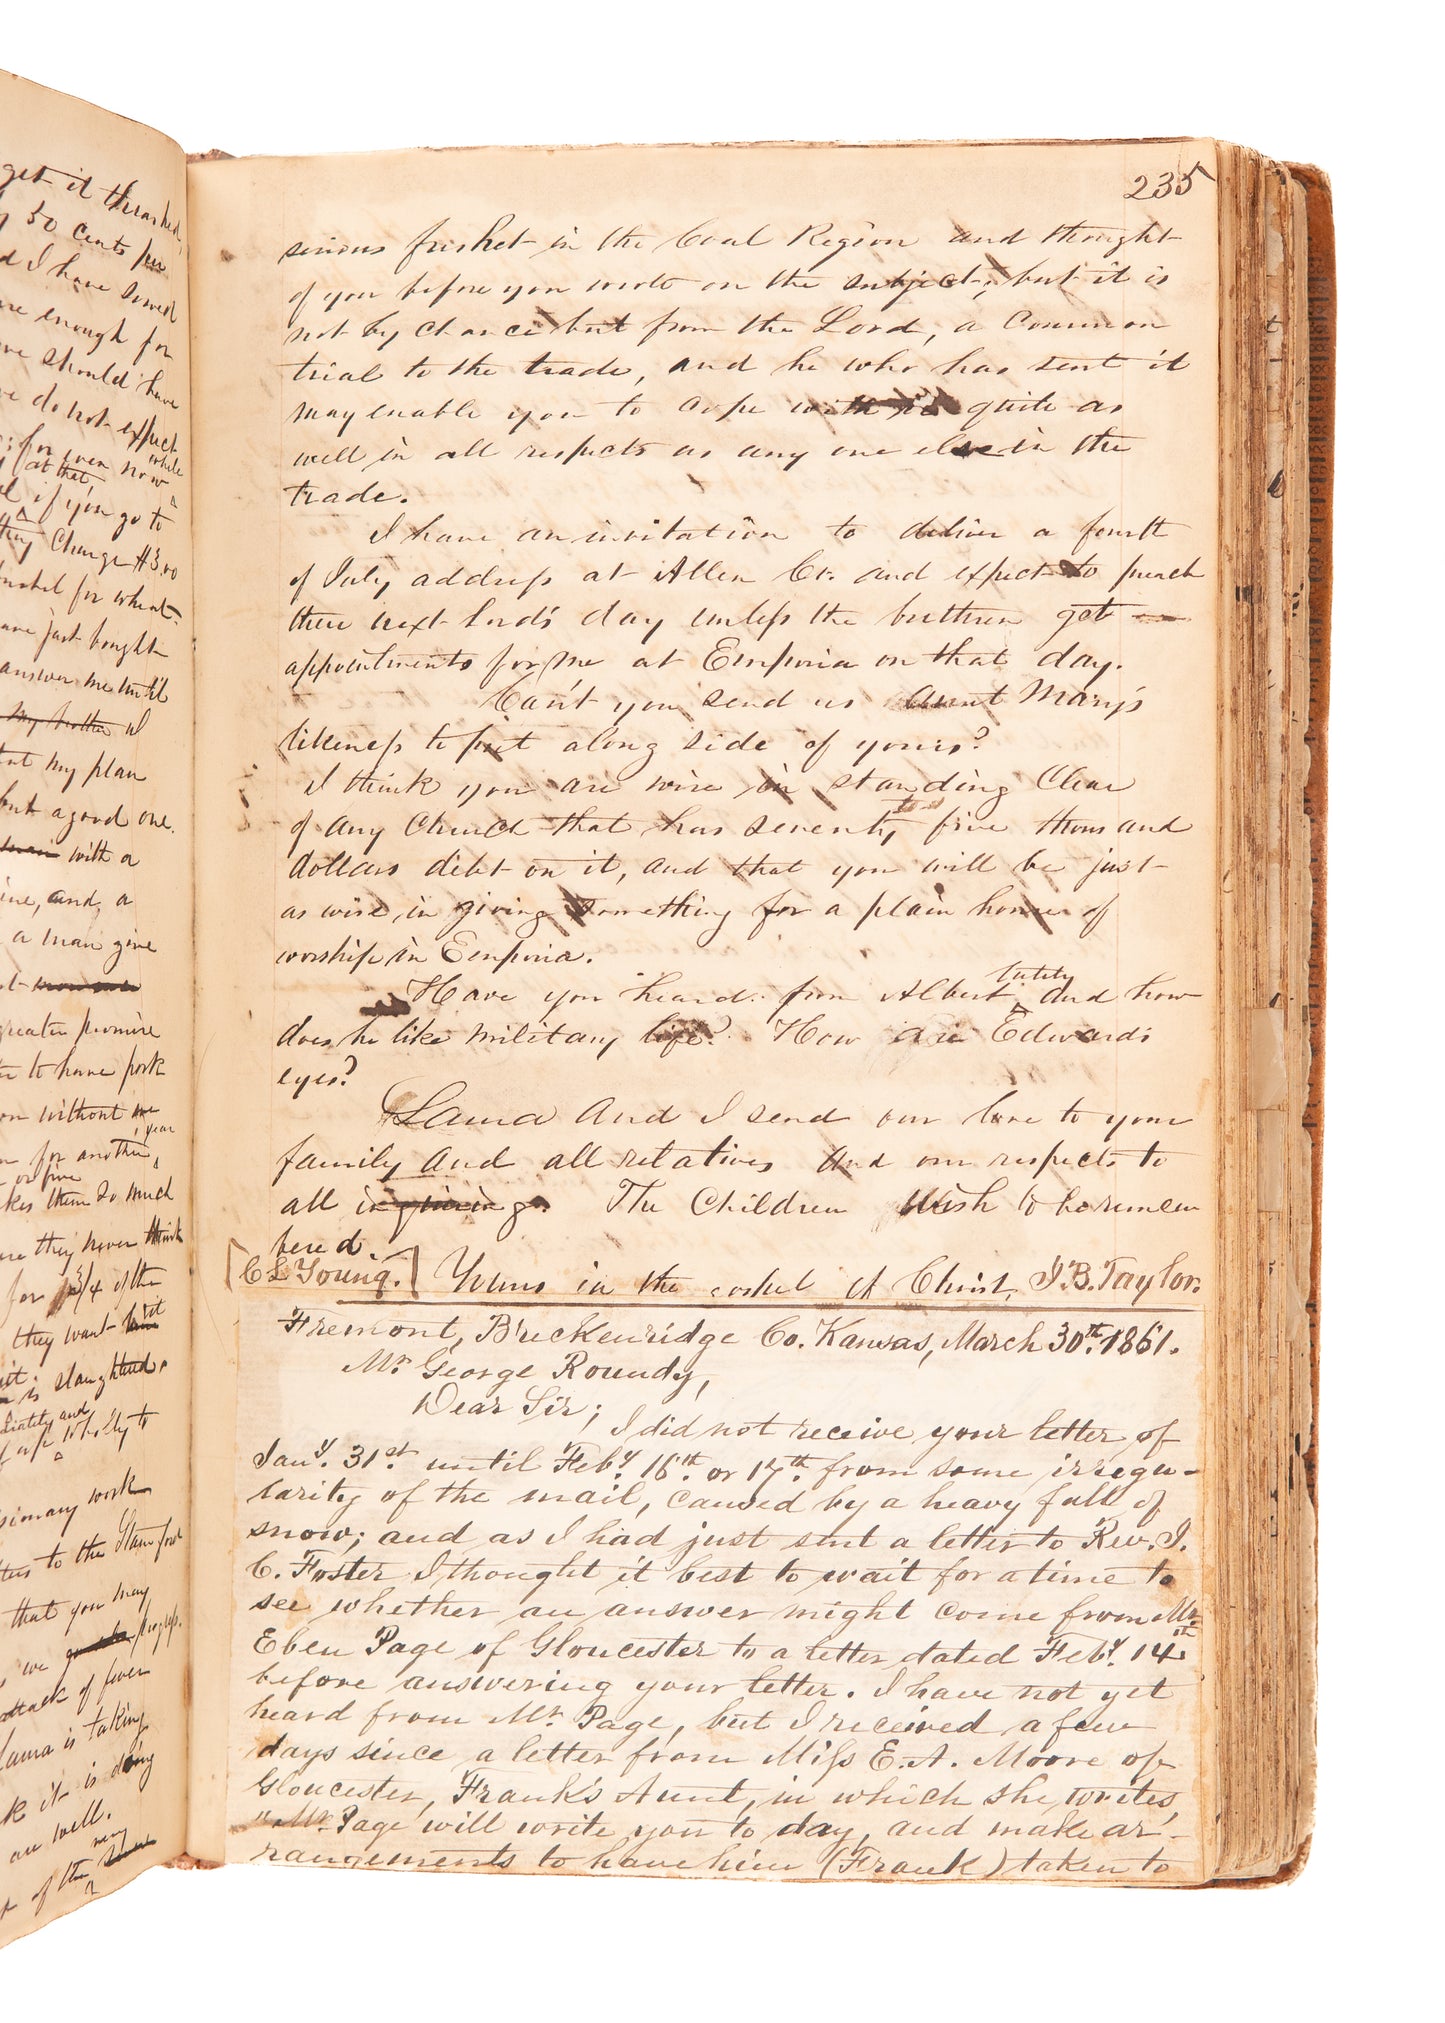 get it thrashed,
50 cents per
d I have sowed
enough for
we should have
we do not expect
for even now while
at that
if you go to
they charge $3.00
bushel for wheat.
have just bought
answer me until
my brother I
but my plan
but a good one.
man with a
ine, and a
a man give
greater promise
to have pork
on without one
year
for another
or five
kes them so much
are they never think
for 3/4 of the
they want
it is slaughtered.
diately and
up wholly to
sionary work
to the Stamford
that you may
we go perhaps.
attack of fever
Laura is taking
k it is doing
are well.
many
of the
235
serious freshet in the Coal Region and thought
of you before you wrote on the subject; but it is
not by chance but from the Lord, a common
trial to the trade, and he who has sent it
may enable you to cope with it quite as
well in all respects as any one else in the
trade.
I have an invitation to deliver a fourth
of July address at Allen Cr. and expect to preach
there next Lord's day unless the brethren get
appointments for me at Emporia on that day.
Can't you send us Aunt Mary's
likeness to put along side of yours?
I think you are wise in standing clear
of any Church that has seventy five thousand
dollars debt on it, and that you will be just
as wise in giving something for a plain house of
worship in Emporia.
lately
Have you heard from Albert and how
does he like military life? How are Edward's
eyes?
Laura and I send our love to your
family and all relatives and our respects to
all inquiring. The Children wish to be remem
bered.
[C L Young.] Yours in the gospel of Christ, J. B. Taylor.
Fremont, Breckenridge Co. Kansas, March 30th. 1861.
Mr. George Roundy,
Dear Sir;
I did not receive your letter of
Jany. 31st. until Feby. 16th. or 17th. from some irregu-
larity of the mail, caused by a heavy fall of
snow; and as I had just sent a letter to Rev. I.
C. Foster I thought it best to wait for a time to
see whether an answer might come from Mr.
Eben Page of Gloucester to a letter dated Feby. 14th.
before answering your letter. I have not yet
heard from Mr. Page, but I received a few
days since a letter from Miss E. A. Moore of
Gloucester, Frank's Aunt, in which she writes,
"Mr. Page will write you to day, and make ar-
rangements to have him (Frank) taken to